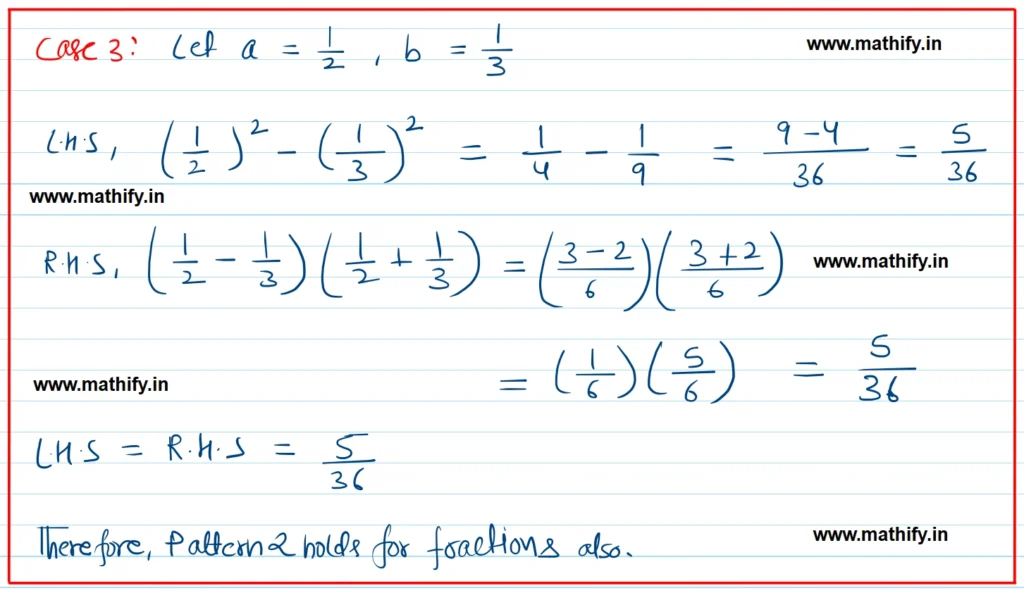 Case 3: Let a = 1/2, b = 1/3 www.mathify.in
L.H.S, (1/2)² - (1/3)² = 1/4 - 1/9 = (9-4)/36 = 5/36
www.mathify.in
R.H.S, (1/2 - 1/3)(1/2 + 1/3) = ((3-2)/6)((3+2)/6) www.mathify.in
= (1/6)(5/6) = 5/36
www.mathify.in
L.H.S = R.H.S = 5/36
Therefore, Pattern 2 holds for fractions also. www.mathify.in